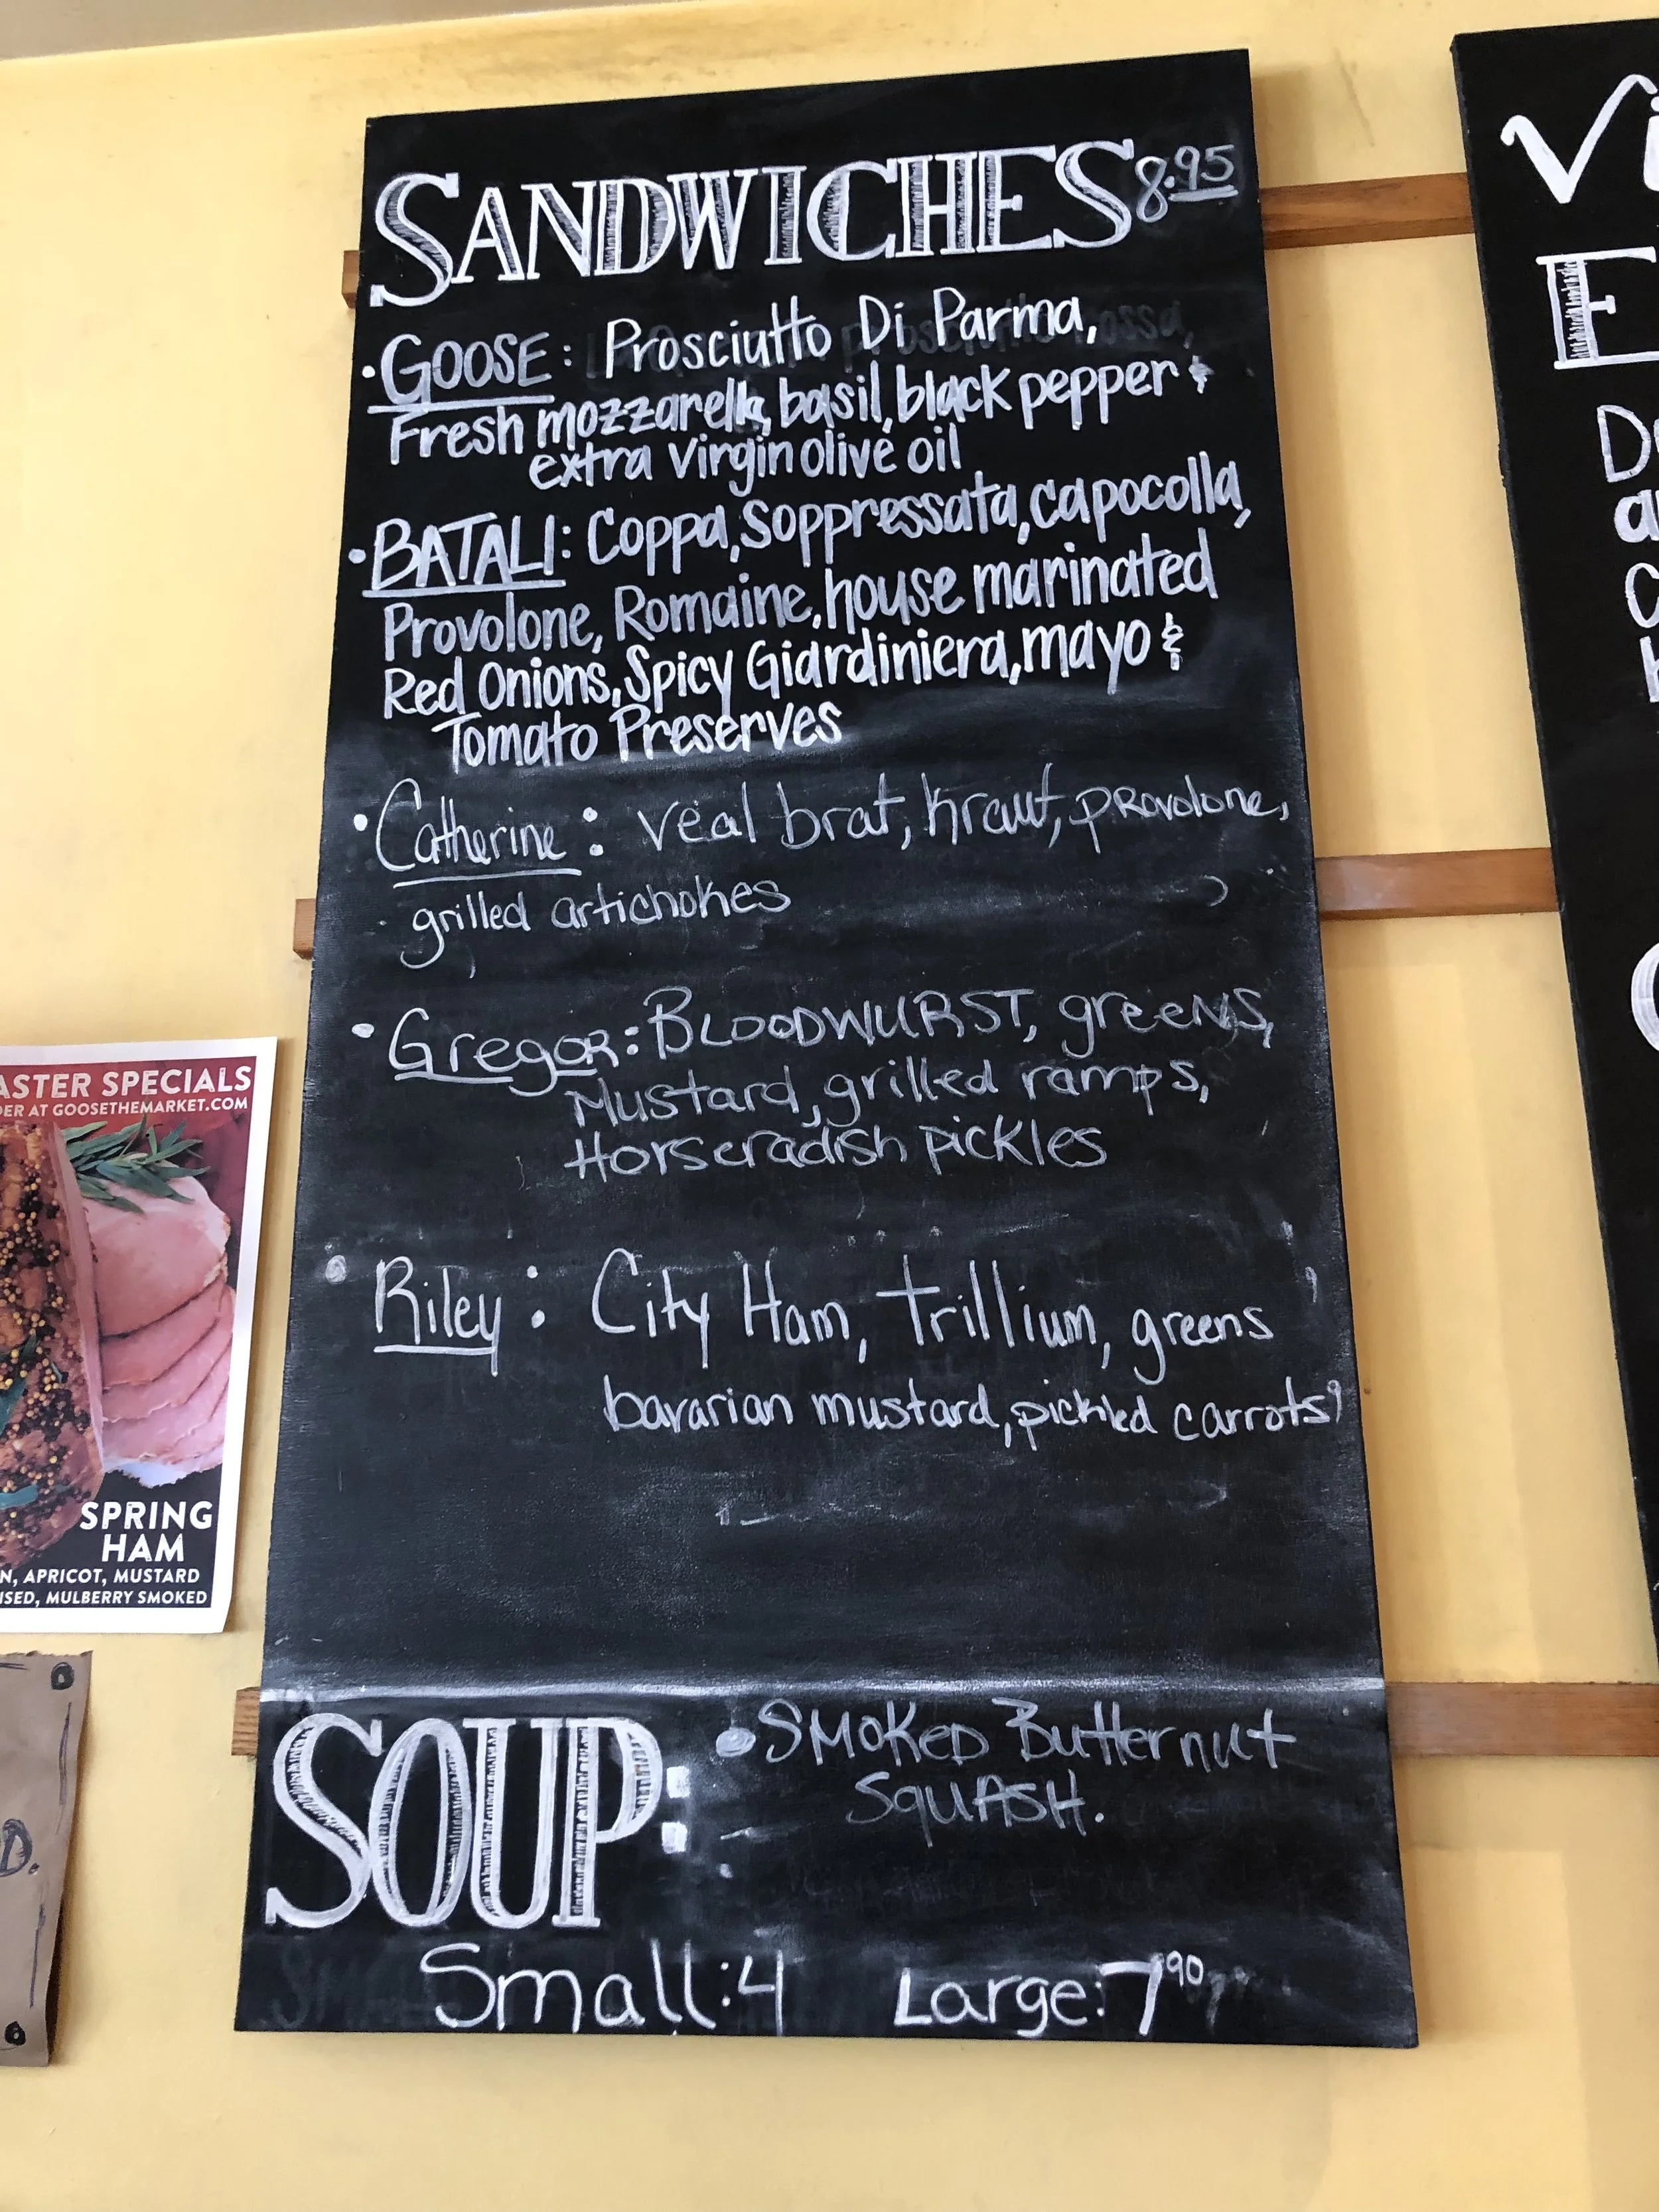 SANDWICHES 8.95
• GOOSE: Prosciutto Di Parma,
Fresh mozzarella, basil, black pepper &
extra virgin olive oil
• BATALI: Coppa, Soppressata, capocolla,
Provolone, Romaine, house marinated
Red Onions, Spicy Giardiniera, mayo &
Tomato Preserves
• Catherine: veal brat, kraut, provolone,
grilled artichokes
• Gregor: BLOODWURST, greens,
Mustard, grilled ramps,
Horseradish pickles
• Riley: City Ham, trillium, greens
bavarian mustard, pickled carrots
SOUP: • SMOKED Butternut
SquASH.
Small: 4 Large: 7.90
ASTER SPECIALS
DER AT GOOSETHEMARKET.COM
SPRING
HAM
N, APRICOT, MUSTARD
ISED, MULBERRY SMOKED
D.
Vi
E